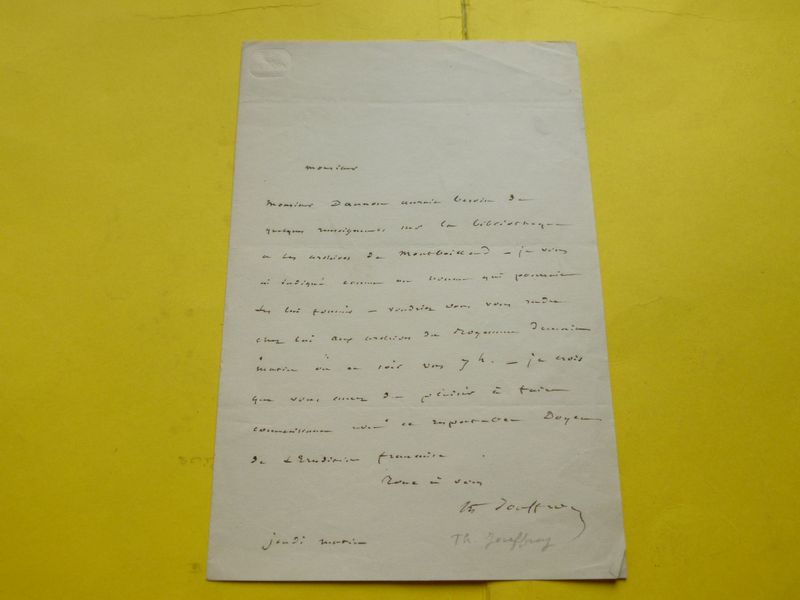 monsieur
Monsieur Daunou aurait besoin de
quelques renseignemens sur la bibliotheque
et les archives de Montbeillard – je vous
ai indiqué comme un homme qui pourrait
les lui fournir – voudriez vous vous rendre
chez lui aux archives du Royaume demain
matin ou ce soir vers 7 h. – je crois
que vous aurez du plaisir à faire
connaissance avec ce respectable Doyen
de l'Erudition française.
Tout à vous
Th Jouffroy
jeudi matin
Th. Jouffroy